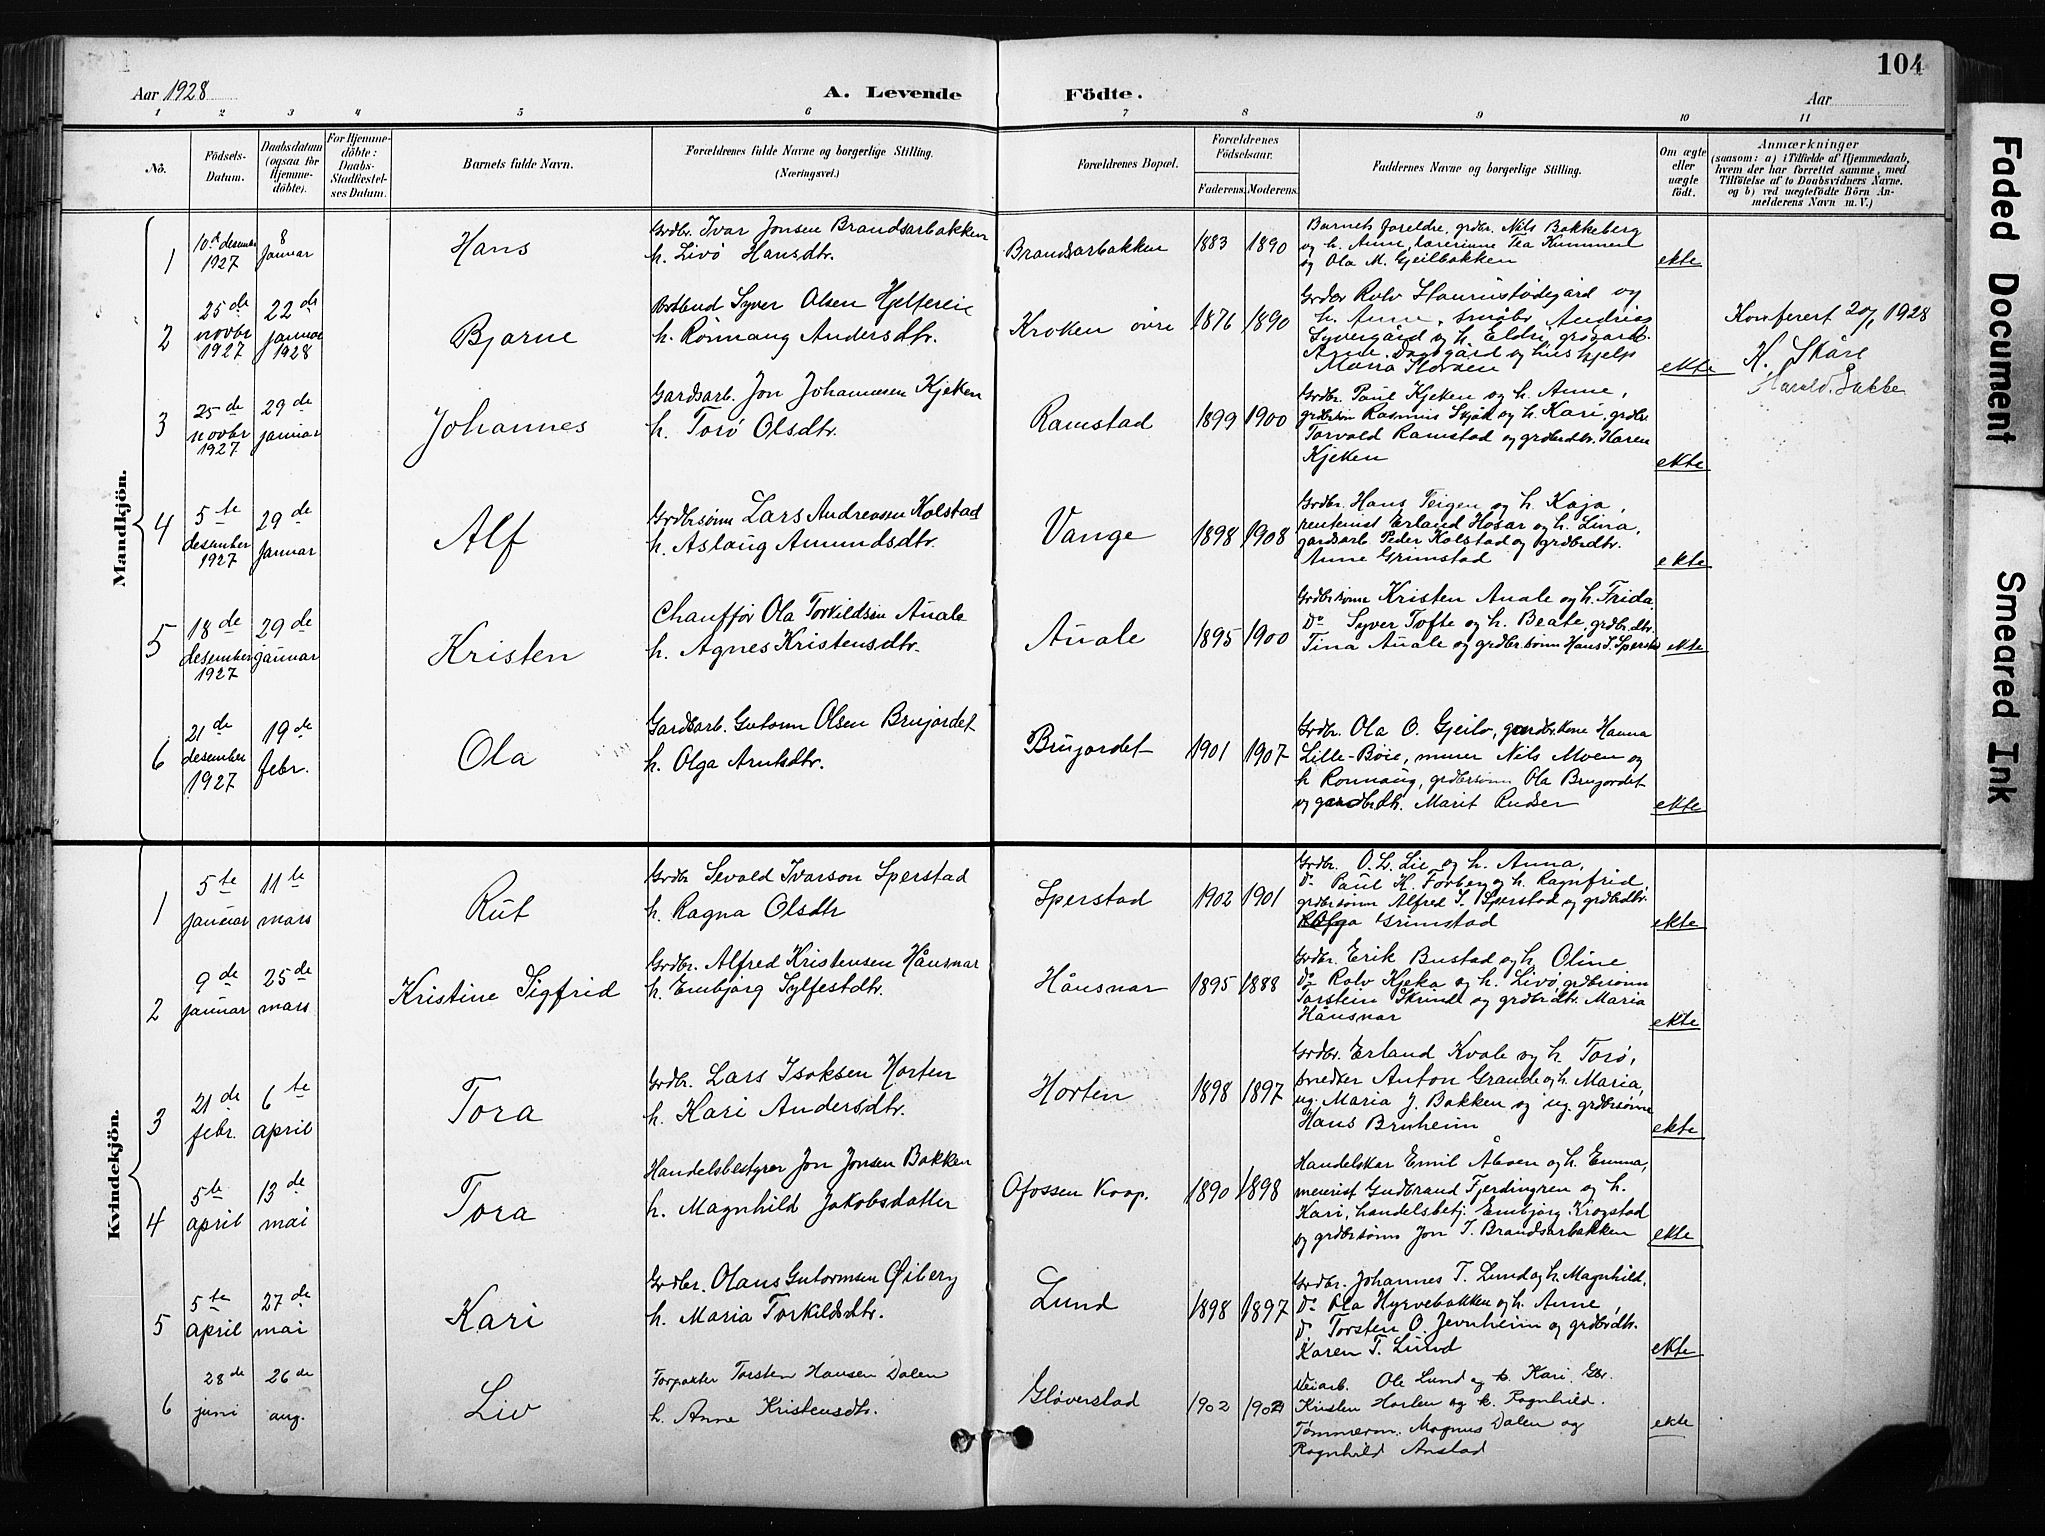 104
Aar 1928
A. Levende Födte.
Aar
1 2 3 4 5 6 7 8 9 10 11
No.
Födsels-Datum.
Daabsdatum (ogsaa for Hjemmedöbte).
For Hjemmedöbte: Daabs-Stadfæstelses Datum.
Barnets fulde Navn.
Forældrenes fulde Navne og borgerlige Stilling. (Næringsvei.)
Forældrenes Bopæl.
Forældrenes Födselsaar.
Faderens. Moderens.
Faddernes Navne og borgerlige Stilling.
Om ægte eller uægte födt.
Anmærkninger
(saasom: a) i Tilfælde af Hjemmedaab, hvem der har forrettet samme, med Tilföielse af to Daabsvidners Navne. og b) ved uægtefödte Börn Anmelderens Navn m. V.)
Mandkjön.
1
10de desemr 1927
8 januar
Hans
Grdbr. Ivar Jonsen Brandsarbakken
h. Livø Hansdtr.
Brandsarbakken
1883 1890
Barnets foreldre, grdbr. Nils Bakkeberg
og h. Anne, lærerinne Tea Kummen
og Ola M. Gjeilbakken
ekte
2
25de novbr 1927
22de januar 1928
Bjarne
Syver Olsen Hjelfereie
h. Rønnaug Andersdtr.
Kroken övre
1876 1890
Grdbr Rolv
h. Anne, småbr. Andreas
Syvergård og h. Eldri,
Anne Dagsgård og hushjelp
Maria
ekte
Konferert 20/1 1928
K. Skåre
Harald Bakke
3
25de novbr 1927
29de januar
Johannes
Gardsarb. Jon Johannesen Kjeken
h. Torø Olsdtr.
Ramstad
1899 1900
Grdbr. Paul Kjeken og h. Anne,
grdbrsønn Rasmus Skjåk og h. Kari, grdbr.
Torvald Ramstad og grdbrdtr. Karen
Kjeken
ekte
4
5te desember 1927
29de januar
Alf
Grdbrsønn Lars Andreassen Kolstad
h. Aslaug Amundsdtr.
Vange
1898 1908
Grdbr. Hans Teigen og h. Kaja,
rentenist Erland Hosar og h. Lina,
gardsarb. Peder Kolstad og grdbrdtr.
Anne Grimstad
ekte
5
18de desember 1927
29de januar
Kristen
Chauffør Ola Torkildsen Aúale
h. Agnes Kristensdtr.
Aúale
1895 1900
Grdbrsønn Kristen Aúale og h. Frida
Do Syver Tofte og h. Beate, grdbr.dtr.
Tina Aúale og grdbr.sønn Hans I. Sperstad
ekte
6
21de desember 1927
19de febr.
Ola
Gardsarb. Gutorm Olsen Brujordet
h. Olga Arntsdtr.
Brujordet
1901 1907
Grdbr. Ola O. Gjeilo, gardbr.kone Hanna
Lille-Bøie, murer Nils Moen og
h Ronnaug, grdbrsønn Ola Brujordet
og gardbrdtr. Marit Rudser
ekte
Kvindekjön.
1
5te januar
11te mars
Rut
Grdbr Sevald Ivarson Sperstad
h. Ragna Olsdtr
Sperstad
1902 1901
Grdbr. O. L. Lie og h. Anna,
Do Paul K. Forberg og h. Ragnfrid,
grdbrsønn Alfred I. Sperstad og grdbrdtr.
Grimstad
ekte
2
9de januar
25de mars
Kristine Sigfrid
Grdbr. Alfred Kristensen Håusnar
h. Embjørg Sylfestdtr.
Håusnar
1895 1888
Grdbr. Erik Bustad og h. Oline
Do Rolv Kjeka og h. Livø, grdbrsønn
Torstein Skrinde og grdbrdtr. Maria
Håusnar
ekte
3
21de febr.
6te april
Tora
Grdbr. Lars Isaksen Horten
h. Kari Andersdtr.
Horten
1898 1897
Grdbr. Erland Kvale og h. Torø,
snedker Anton Grande og h. Maria,
ug. Maria J. Bakken og ug. grdbrsønn
Hans Bruheim
ekte
4
5te april
13de mai
Tora
Handelsbestyrer Jon Jonsen Bakken
h. Magnhild Jakobsdatter
Ofossen Koop.
1890 1898
Handelskar Emil Åboen og h. Emma,
meierist Gudbrand Fjerdingren og h.
Kari, handelsbetj. Embjørg Krogstad
og grdbrsønn Jon I. Brandsarbakken
ekte
5
5te april
27de mai
Kari
Grdbr. Olaus Gutormsen Øiberg
h. Maria Torkildsdtr.
Lund
1898 1897
Grdbr. Johannes T. Lund og h. Magnhild,
Do Ola Hyrvebakken og h. Anne,
Do Torsten O. Jevnheim og grdbrdtr.
Karen T. Lund
ekte
6
28de juni
26de aug.
Liv
Forpakter Torsten Hansen Dalen
h. Anne Kristensdtr.
Gløverstad
1902 1902
Veiarb. Ole Lund og h. Kari. Gbr.
Kristen Horten og k. Ragnhild.
Tømmerm. Magnus Dalen og
Ragnhild Anstad
ekte
Faded Document
Smeared Ink